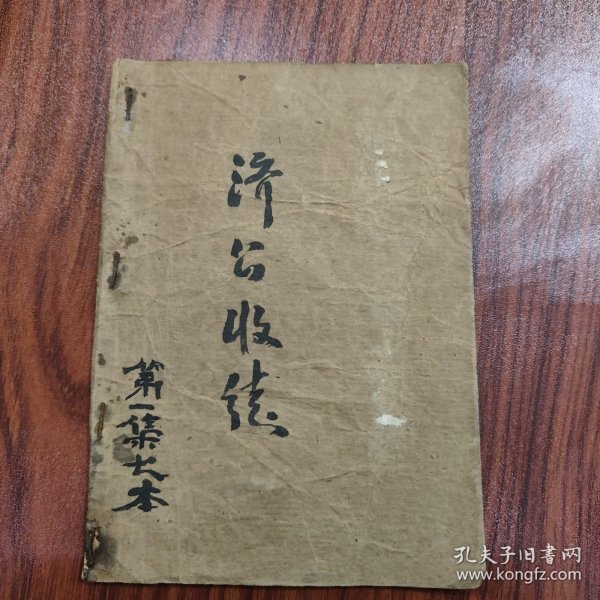 济公收徒
第一集大本
孔夫子旧书网
www.kongfz.com